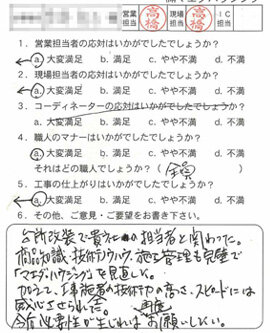 営業担当 高橋 現場担当 高橋 IC担当
1. 営業担当者の応対はいかがでしたでしょうか?
a. 大変満足 b. 満足 c. やや不満 d. 不満
2. 現場担当者の応対はいかがでしたでしょうか?
a. 大変満足 b. 満足 c. やや不満 d. 不満
3. コーディネーターの応対はいかがでしたでしょうか?
a. 大変満足 b. 満足 c. やや不満 d. 不満
4. 職人のマナーはいかがでしたでしょうか?
a. 大変満足 b. 満足 c. やや不満 d. 不満
それはどの職人でしょうか? (全員)
5. 工事の仕上がりはいかがでしたでしょうか?
a. 大変満足 b. 満足 c. やや不満 d. 不満
6. その他、ご意見・ご要望をお書き下さい。
台所改装で貴社の担当者と関わった。
商品知識、技術ノウハウ、施工管理も完璧で
「マエダハウジング」を見直した。
加えて、工事施者の技術力の高さ、スピードには
感心させられた。
今后必要性が生じれば再度お願いしたい。